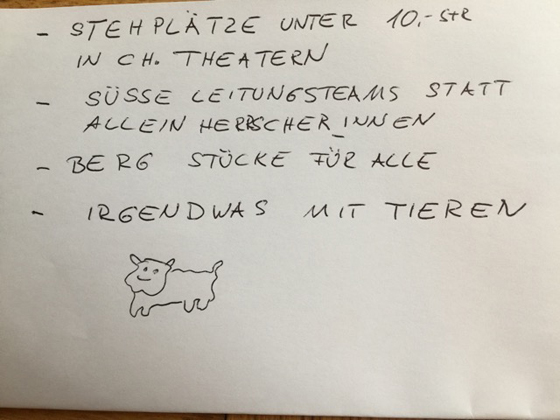 - STEHPLÄTZE UNTER 10.- STR
IN CH. THEATERN
- SÜSSE LEITUNGSTEAMS STATT
ALLEIN HERRSCHER_INNEN
- BERG STÜCKE FÜR ALLE
- IRGENDWAS MIT TIEREN